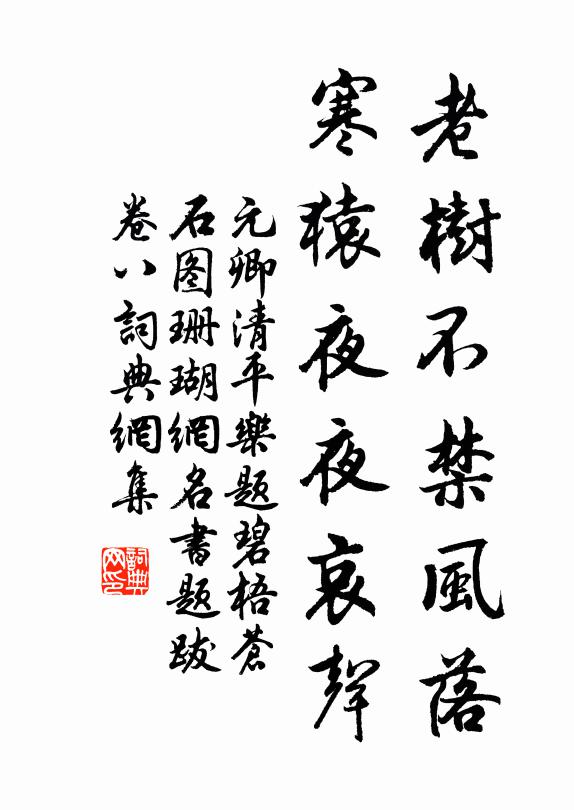 老樹不禁風落
寒猿夜夜哀聲
元卿清平樂題碧梧蒼
石图珊瑚網名書題跋
卷八詞典網集
詞典
网印